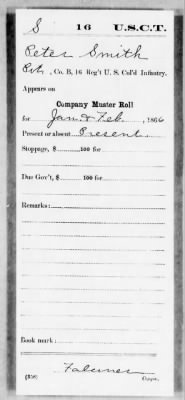 S 16 U.S.C.T.
Peter Smith
Pvt, Co. B, 16 Reg't U. S. Col'd Infantry.
Appears on
Company Muster Roll
for Jan & Feb, 1866
Present or absent Present.
Stoppage, $ 100 for
Due Gov't, $ 100 for
Remarks:
Book mark:
(358) Copyist.